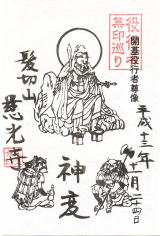 集印巡り
開基役行者尊像
平成十三年
十一月二十四日
神変
髪切山
慈光寺